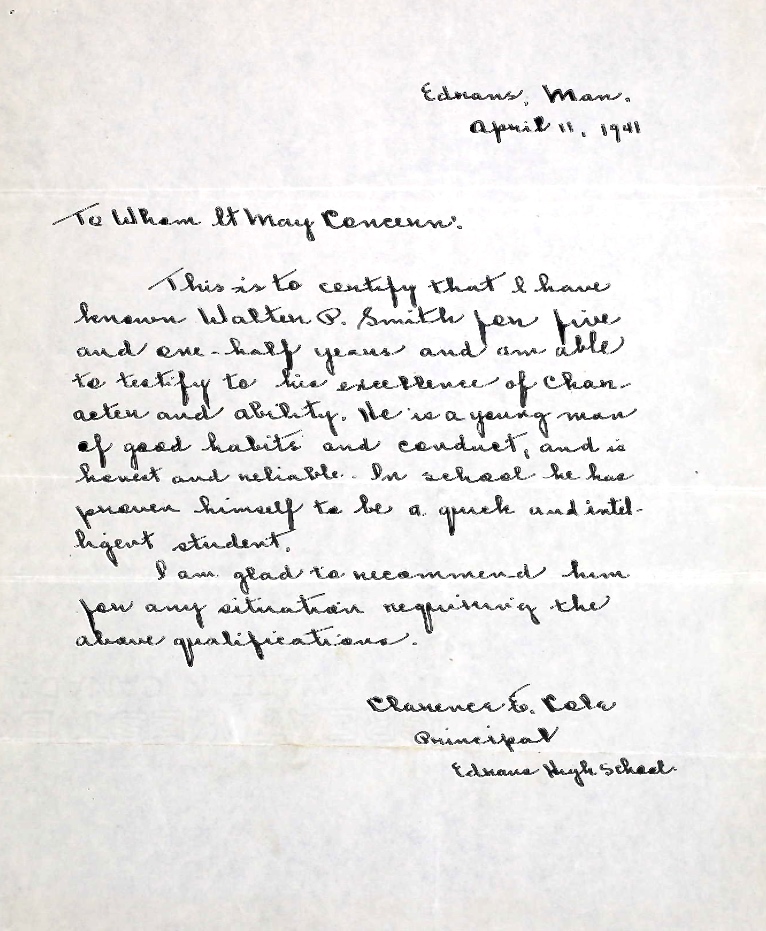 Edrans, Man.
April 11, 1941
To Whom It May Concern:
This is to certify that I have
known Walter P. Smith for five
and one-half years and am able
to testify to his excellence of char-
acter and ability. He is a young man
of good habits and conduct, and is
honest and reliable. In school he has
proven himself to be a quick and intel-
ligent student.
I am glad to recommend him
for any situation requiring the
above qualifications.
Clarence E. Cole
Principal
Edrans High School.